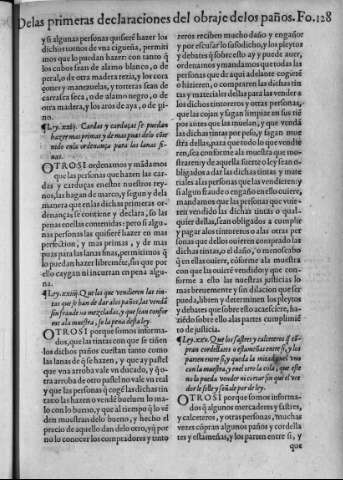 Delas primeras declaraciones del obraje delos paños. Fo.128
y si algunas personas quisierē hazer los
dichos tornos de vna cigueña, permiti
mos que lo puedan hazer: con tanto q̃
los cubos sean de alamo blanco, o de
peral, o de otra madera rezia, y los cora
çones y manezuelas, y tornteras sean de
carrasca seca, o de alamo negro, o de
otra madera, y los aros de aya, o de pi
no.
¶Ley .xxij. Cardas y carduças se puedan
hazer mas primas y de mas puas delo cōte
nido enla ordenança para las lanas fi
nas.
OTROSI ordenamos y mādamos
que las personas que hazen las car
das y carduças enellos nuestros rey
nos, las hagan de marco, y segun y dela
manera que en las dichas primeras or-
denanças se contiene y declara, so las
penas en ellas contenidas: pero si algu-
nas personas las quisierē hazer en mas
perfection, y mas primas, y de mas
puas para las lanas finas, permitimos q̃
lo puedan hazer libremēte, sin que por
ello caygan ni incurran en pena algu-
na.
¶Ley .xxiij. Que los que vendieren las tin-
tas que se han de dar alos paños, las vendā
sin fraude ni mezcladas, y que sean confor
mes ala muestra, so la pena desta ley.
OTROSI porque somos informa-
dos, que las tintas con que se tiñen
los dichos paños cuestan tanto como
las lanas de q̃ se hazen, y que ay pastel
que vna arroba vale vn ducado, y q̃ o-
tra arroba de otro pastel no vale vn real
y que las personas q̃ cogē las dichas tin
tas o las hazen o vendē bueluen lo ma-
lo con lo bueno, y que al tiempo q̃ lo vē
den muestran delo bueno, y hecho el
precio de aquello dan delo otro, y q̃ por
no lo conocer los compradores y tinto
zeros reciben mucho daño y engaño:
y por escusar lo susodicho, y los pleytos
y debates q̃ sobre esto ay y puede auer,
ordenamos y mandamos que todas las
personas que de aqui adelante cogierē
o hizieren, o compraren las dichas tin
tas y materiales dellas para las vender a
los dichos tintoreros y otras personas,
que las cojan y hagan limpias en sus tiē
pos antes que las muelan, y que vendā
las dichas tintas por peso, y sagan mue
stra dellas, para que todo lo que vendie
rē, sea conforme ala muestra que mo-
straren: y de aquella suerte o ley sean o-
bligados a dar las dichas tintas y mate
riales alas personas que las vendieren: y
si algun fraude o engaño en ello ouiere,
mandamos que las personas que vuie-
ren vendido las dichas tintas o qual-
quier dellas, sean obligados a cumplir
y pagar alos tintoreros o alas otras per
sonas que dellos ouieren comprado las
dichas tintas, o el daño, o menoscabo
q̃ en ellas ouiere, cōforme ala muestra
con que las ouierē vendido: y que con-
forme a esto las nuestras justicias lo
mas breuemente y sin dilacion que ser
pueda, libren y determinen los pleytos
y debates que sobre ello acaesciere, ha-
ziēdo sobre ello alas partes cumplimiē
to de justicia.
¶Ley .xxv. Que los sastres y calceteros q̃ cō
pran cordellates o estameñas entre si, y las
parten entre si, y queda la mitad al vno
con la muestra, y enel otro la cola, que este
no la pueda vender ni cortar sin que el ven
dedor le selle y señale por de ley.
OTROSI porque somos informa-
dos q̃ algunos mercaderes y sastres,
y calceteros, y otras personas, muchas
vezes cōpran algunos paños y cordella
tes y estameñas, y los parten entre si, y
que